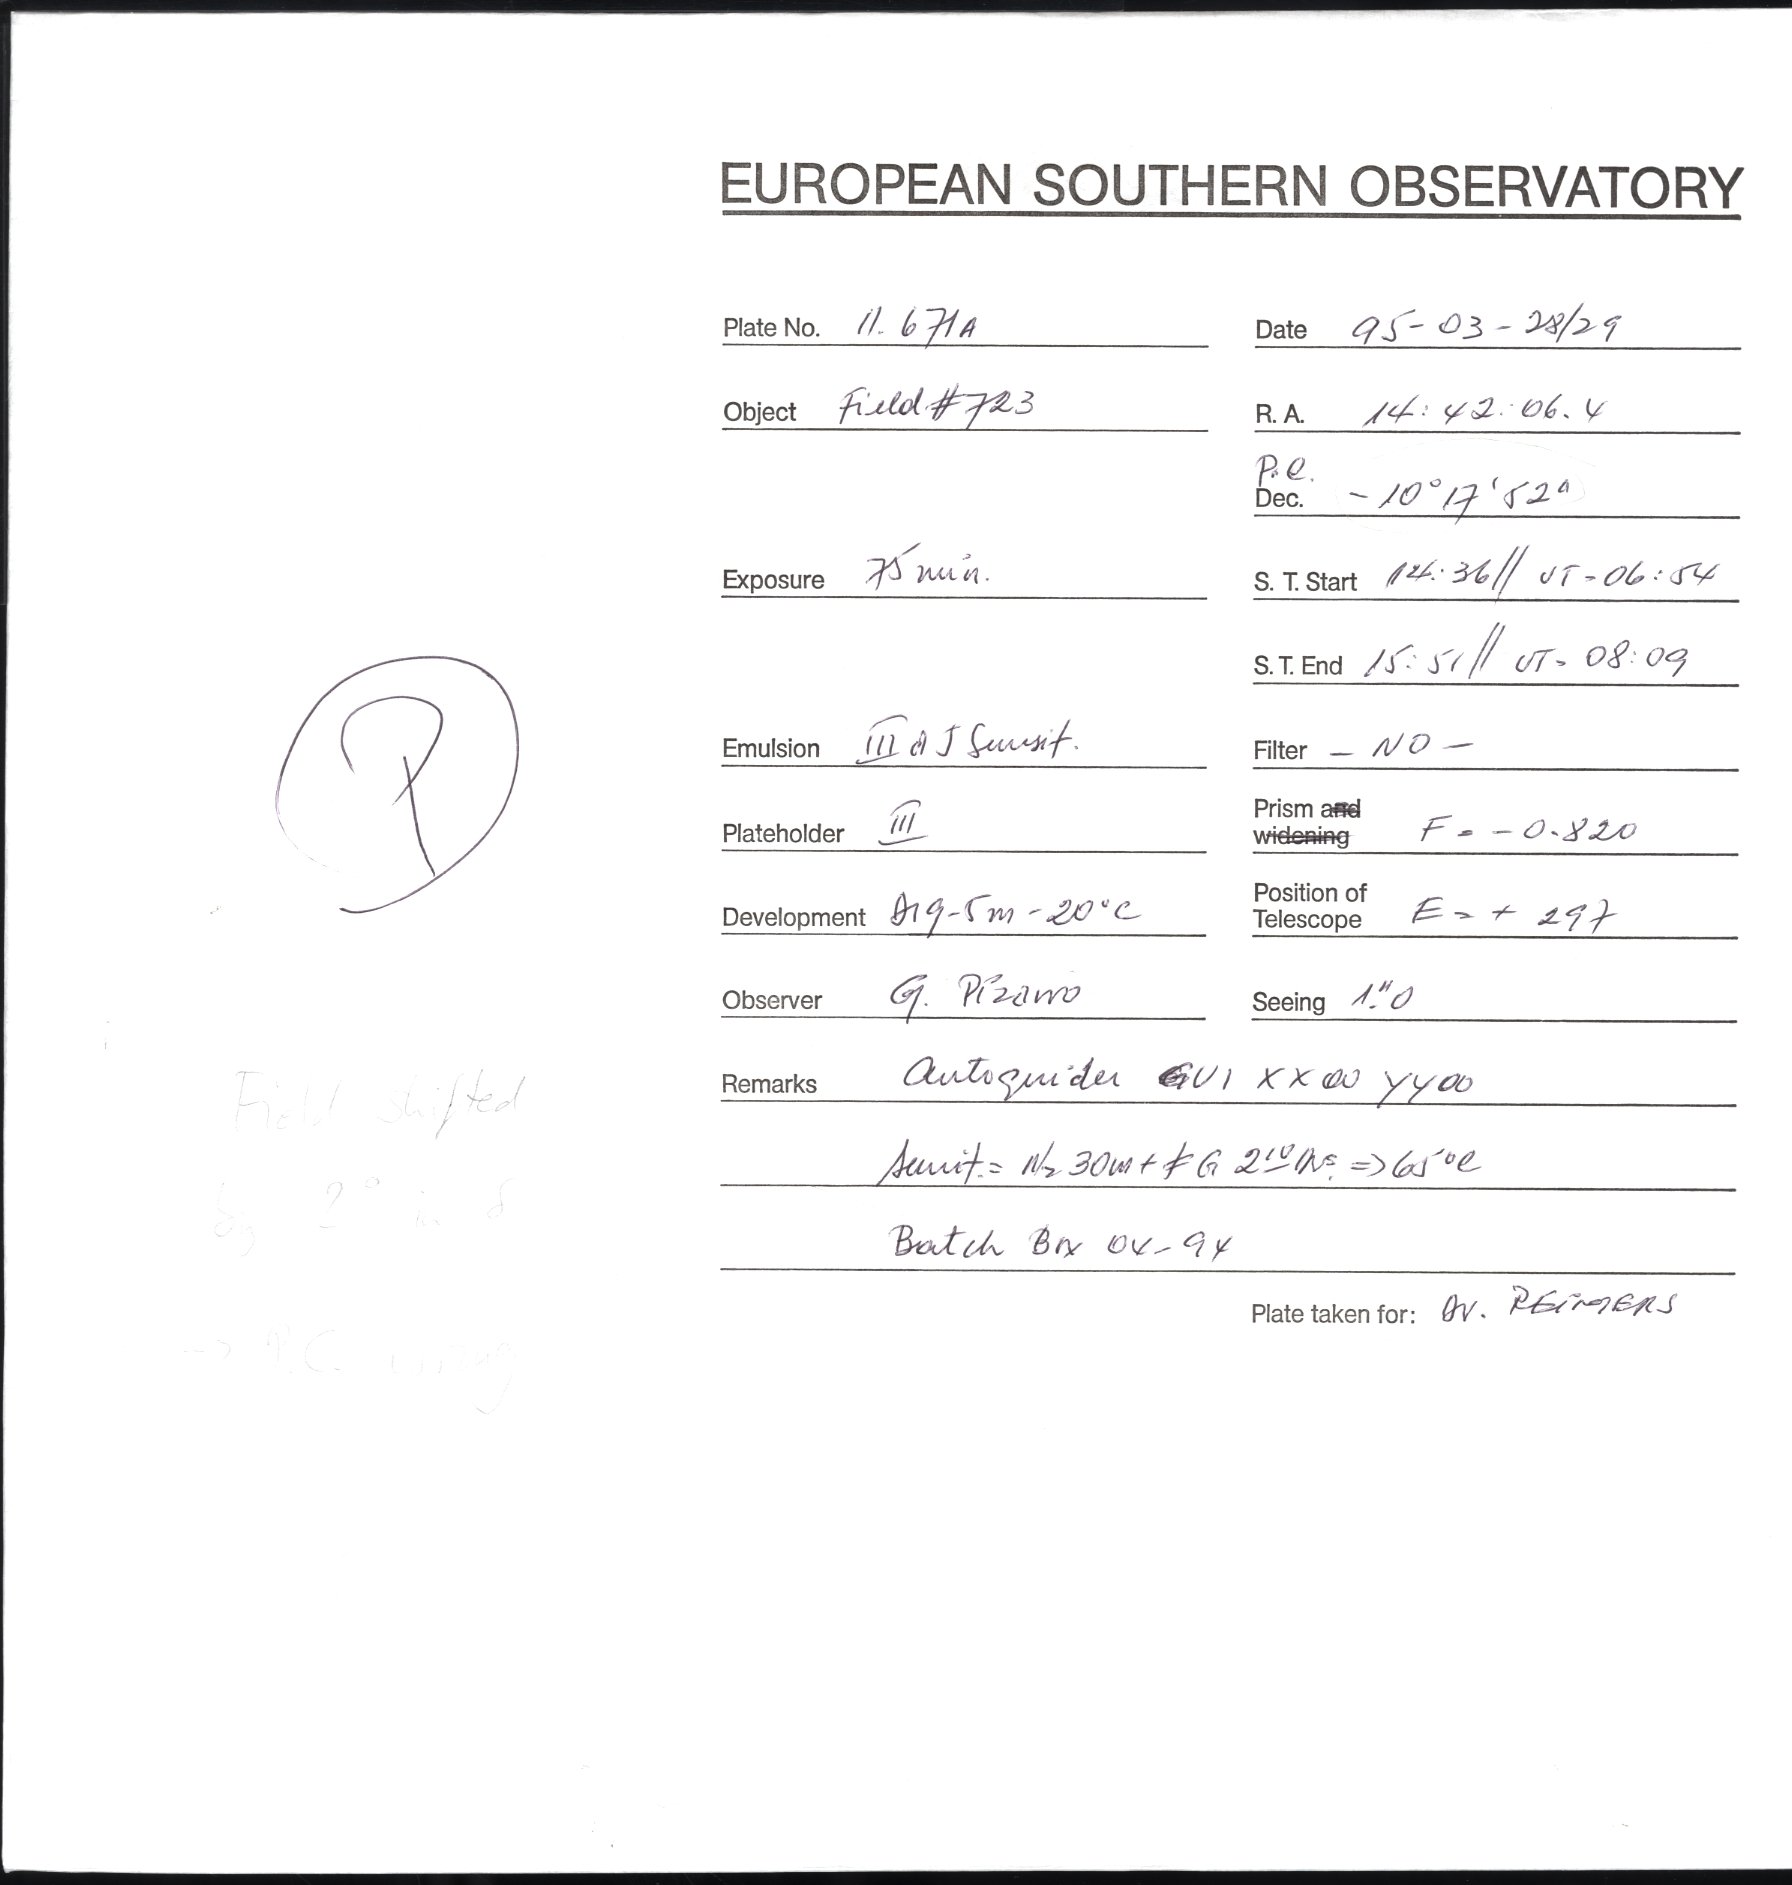 EUROPEAN SOUTHERN OBSERVATORY
Plate No. 11.671A
Date 95-03-28/29
Object Field #723
R. A. 14:42:06.4
P.C.
Dec. -10°17'52"
Exposure 75 min.
S. T. Start 14:36// UT=06:54
S. T. End 15:51// UT=08:09
P
Emulsion III a J Sensit.
Filter - NO -
Plateholder III
Prism and
widening F= -0.820
Development D19-5m-20°C
Position of
Telescope E=+297
Observer G. Pizarro
Seeing 1."0
Remarks Autoguider GUI XX00 YY00
Field shifted
by 2° in δ
Sensit.= N2 30m+ FG => 65°C
Batch Box 04-94
Plate taken for: Dr. REIMERS
-> P.C. wrong